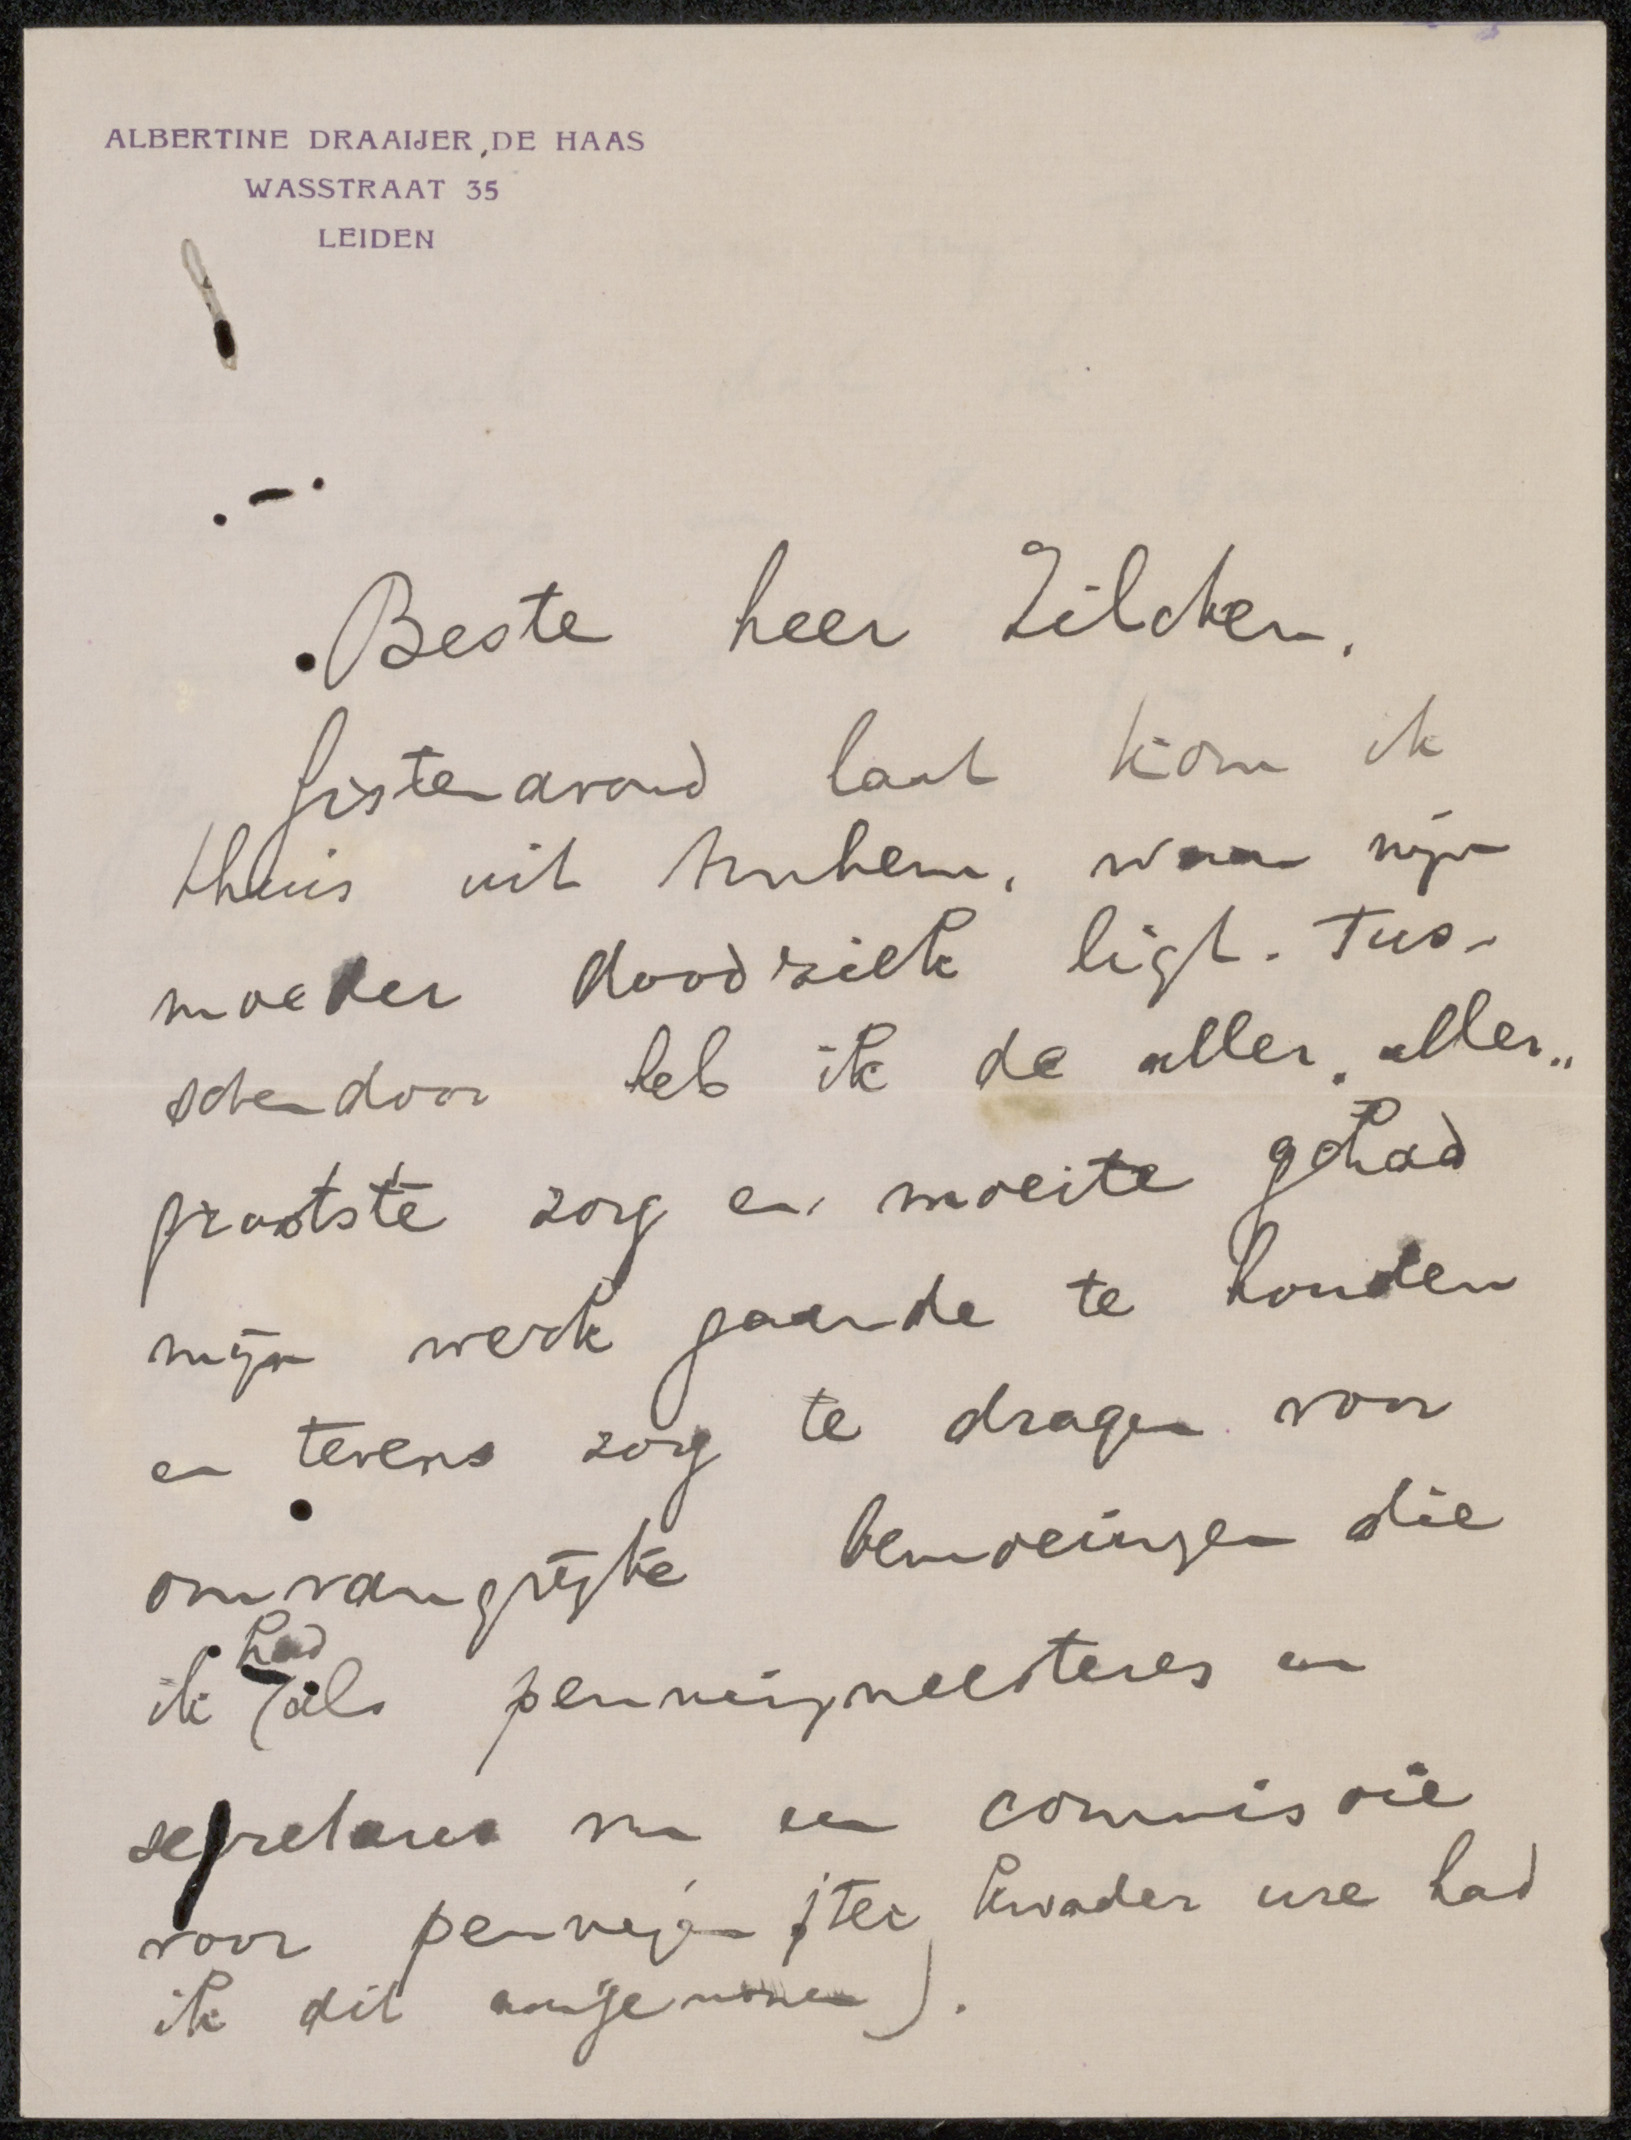 ALBERTINE DRAAIJER, DE HAAS
WASSTRAAT 35
LEIDEN
Beste heer Zilcken.
Gisterenavond laat kom ik
thuis uit Arnhem, waar mijn
moeder doodziek ligt. Tus-
schendoor heb ik de aller-aller-
grootste zorg en moeite gehad
mijn werk gaande te houden
en tevens zorg te dragen voor
omvangrijke bemoeiingen die
ik had (als penningmeesteres en
secretaresse van een commissie
voor ; ter kwader ure had
ik dit aangenomen).